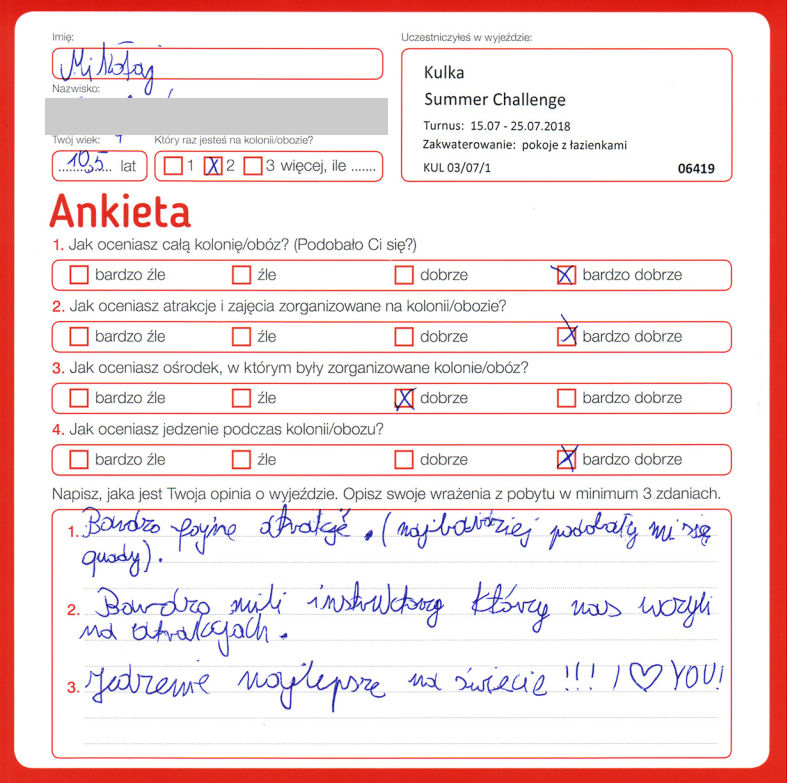 Imię:
Mikołaj
Nazwisko:
Twój wiek:
10,5 lat
Który raz jesteś na kolonii/obozie?
1 X 2 3 więcej, ile .......
Uczestniczyłeś w wyjeździe:
Kulka
Summer Challenge
Turnus: 15.07 - 25.07.2018
Zakwaterowanie: pokoje z łazienkami
KUL 03/07/1 06419
Ankieta
1. Jak oceniasz całą kolonię/obóz? (Podobało Ci się?)
bardzo źle źle dobrze X bardzo dobrze
2. Jak oceniasz atrakcje i zajęcia zorganizowane na kolonii/obozie?
bardzo źle źle dobrze X bardzo dobrze
3. Jak oceniasz ośrodek, w którym były zorganizowane kolonie/obóz?
bardzo źle źle X dobrze bardzo dobrze
4. Jak oceniasz jedzenie podczas kolonii/obozu?
bardzo źle źle dobrze X bardzo dobrze
Napisz, jaka jest Twoja opinia o wyjeździe. Opisz swoje wrażenia z pobytu w minimum 3 zdaniach.
1. Bardzo fajne atrakcje. (najbardziej podobały mi się
quady).
2. Bardzo mili instruktorzy którzy nas uczyli
na atrakcjach.
3. Jedzenie najlepsze na świecie!!! I ♡ YOU!